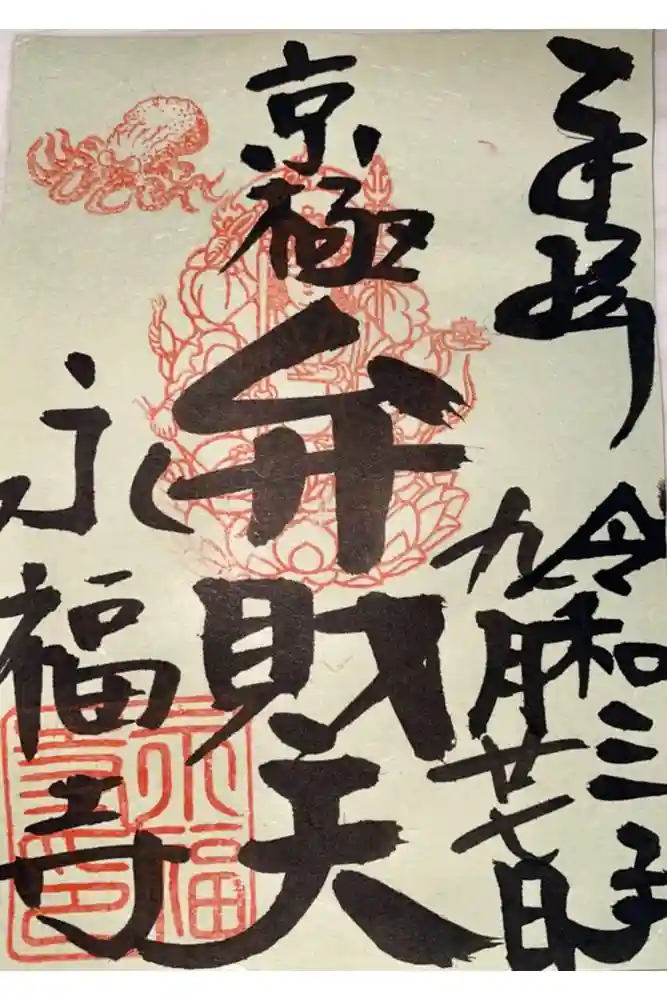 奉拝
令和三年
九月廿七日
京極
弁財天
永福寺
永福
寺印